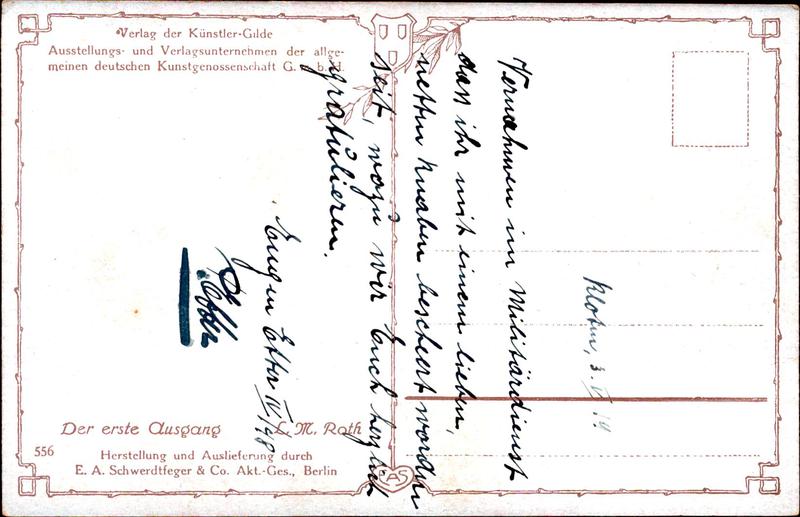 Verlag der Künstler-Gilde
Ausstellungs- und Verlagsunternehmen der allge-
meinen deutschen Kunstgenossenschaft G. m. b. H.
Kloten, 3. V. 19
Vernahmen im Militärdienst
dass ihr mit einem lieben,
netten Knaben beschert worden
seit, wozu wir Euch herzlich
gratulieren.
Eugen Etter IV/98
Der erste Ausgang
L. M. Roth
556
Herstellung und Auslieferung durch
E. A. Schwerdtfeger & Co. Akt.-Ges., Berlin
EAS